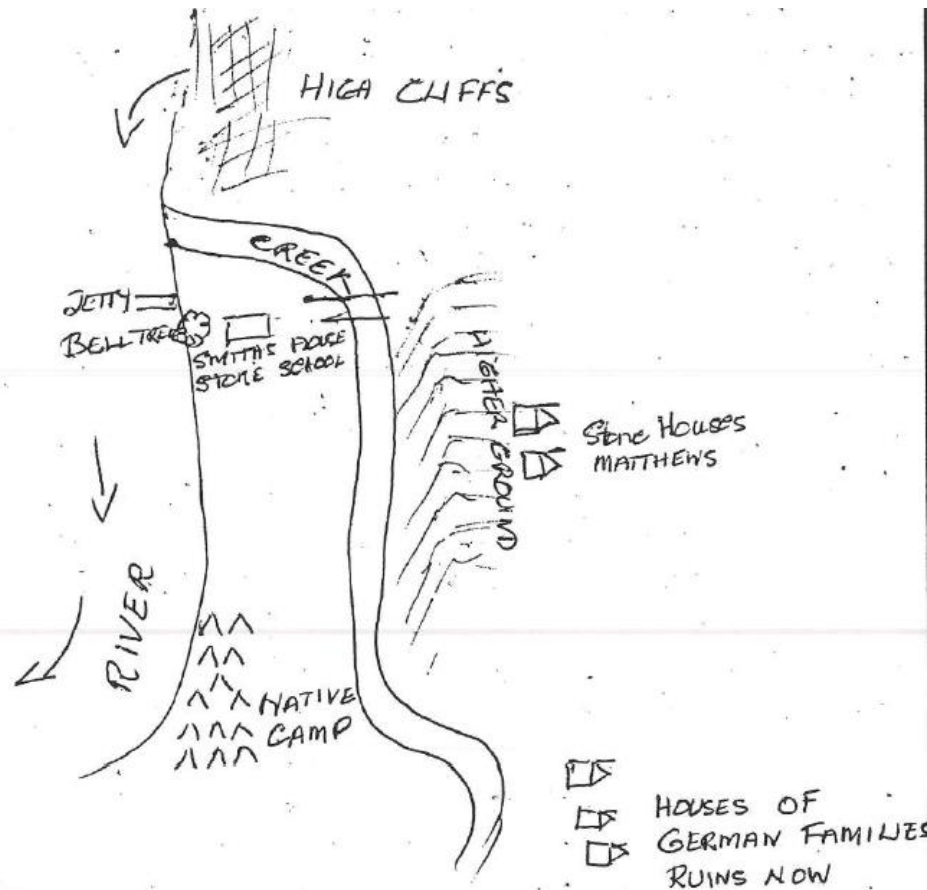 HIGH CLIFFS
CREEK
JETTY
BELL TREE
SMITHS HOUSE
STORE SCHOOL
HIGHER GROUND
Stone Houses
MATTHEWS
RIVER
NATIVE
CAMP
HOUSES OF
GERMAN FAMILIES
RUINS NOW